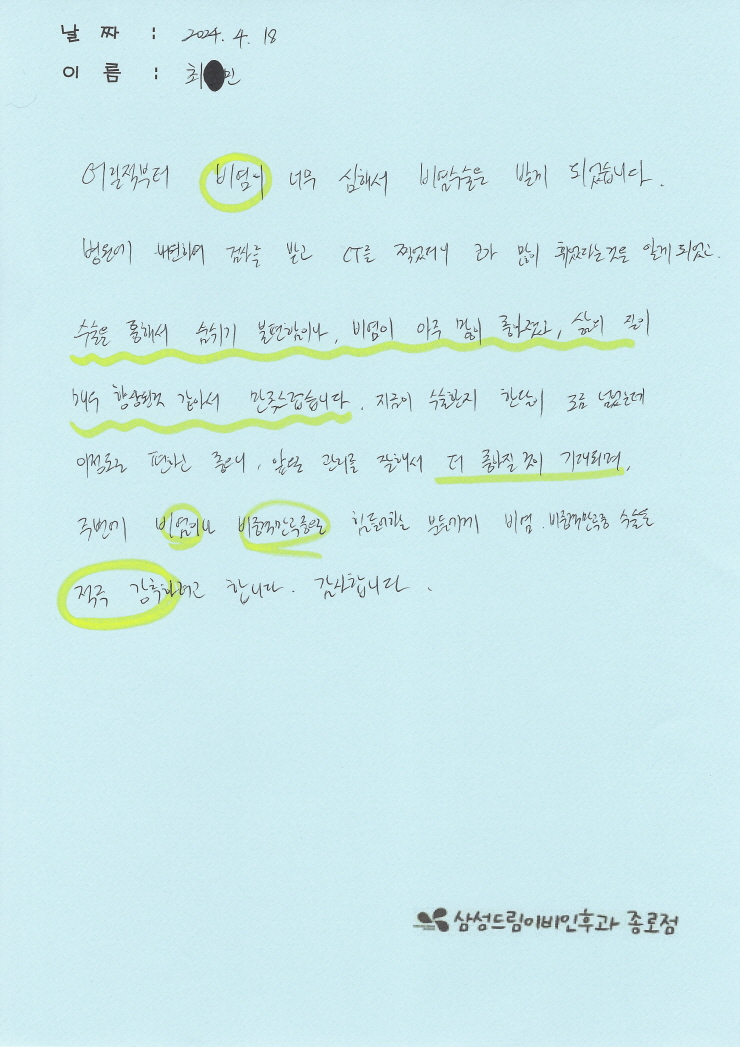 날 짜 : 2024. 4. 18
이 름 : 최 민
어릴적부터 비염이 너무 심해서 비염수술을 받게 되었습니다.
병원에 내원하여 검사를 받고 CT를 찍었더니 코가 많이 휘었다는것을 알게되었고.
수술을 통해서 숨쉬기 불편함이나, 비염이 아주 많이 좋아졌고, 삶의 질이
매우 향상된것 같아서 만족스럽습니다. 지금이 수술한지 한달이 조금 넘었는데
이정도로 편하고 좋으니, 앞으로 관리를 잘해서 더 좋아질 것이 기대되며,
주변에 비염이나 비중격만곡증으로 힘들어하는 분들에게 비염, 비중격만곡증 수술을
적극 강추하려고 합니다. 감사합니다.
삼성드림이비인후과 종로점